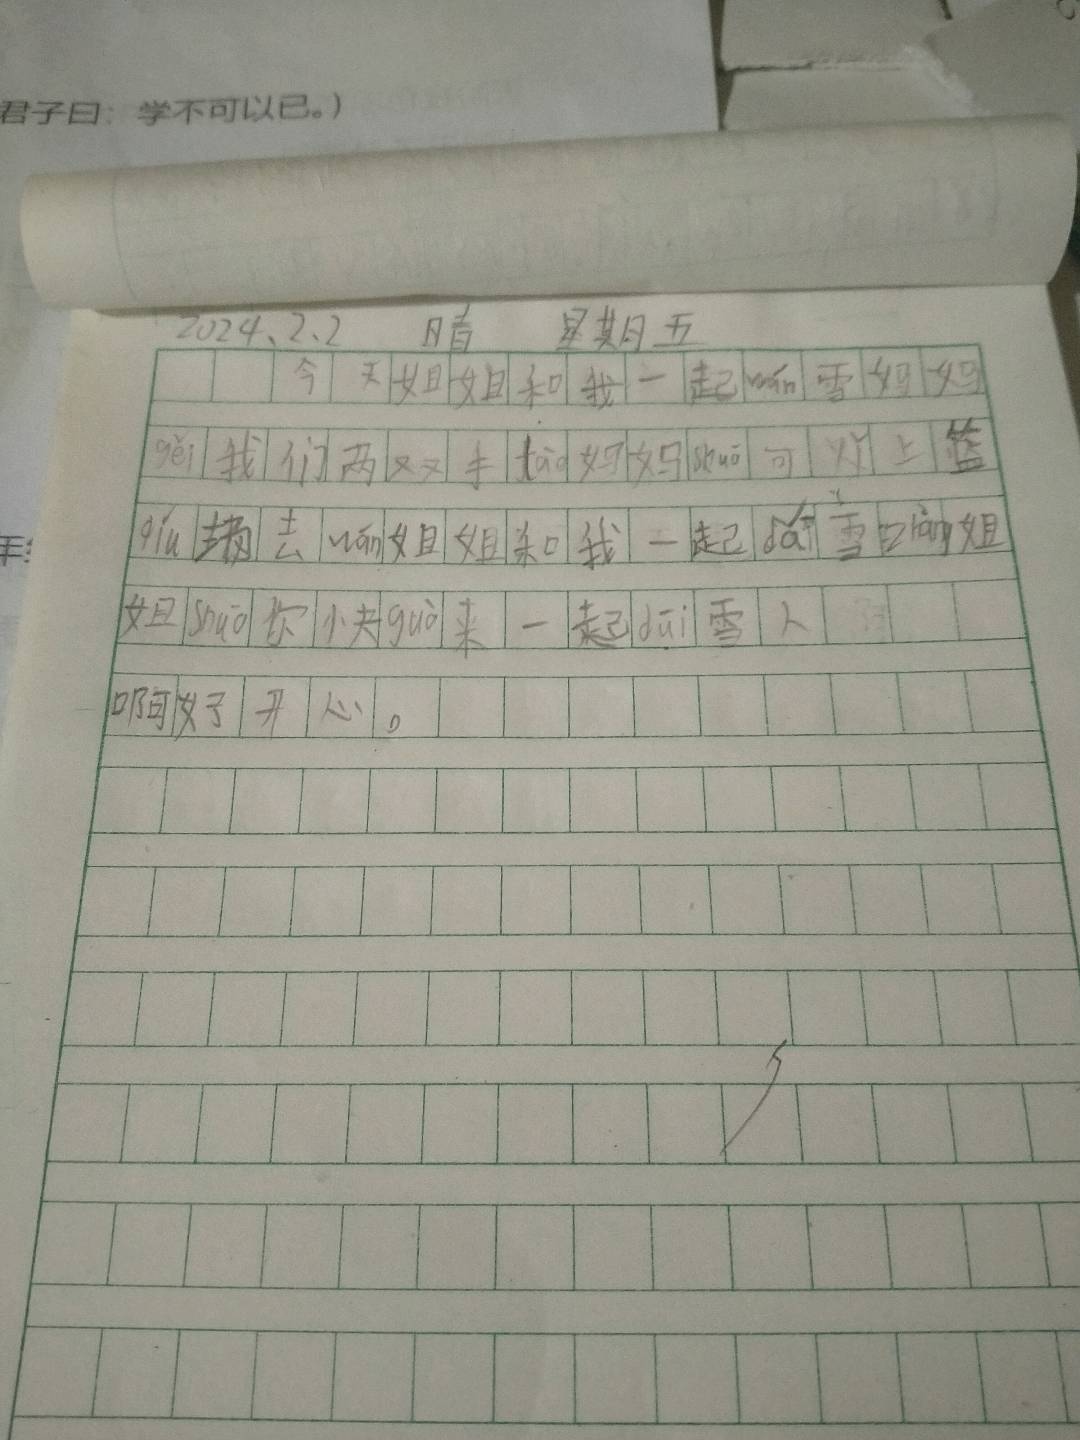 君子曰：学不可以已。）
2024、2、2 晴 星期五
今天姐姐和我一起wán雪妈妈
gěi我们两双手tào妈妈shuō可以上
qiú去wán姐姐和我一起duī雪
姐shuō你小夫guò来一起duī雪人
啊好开心。